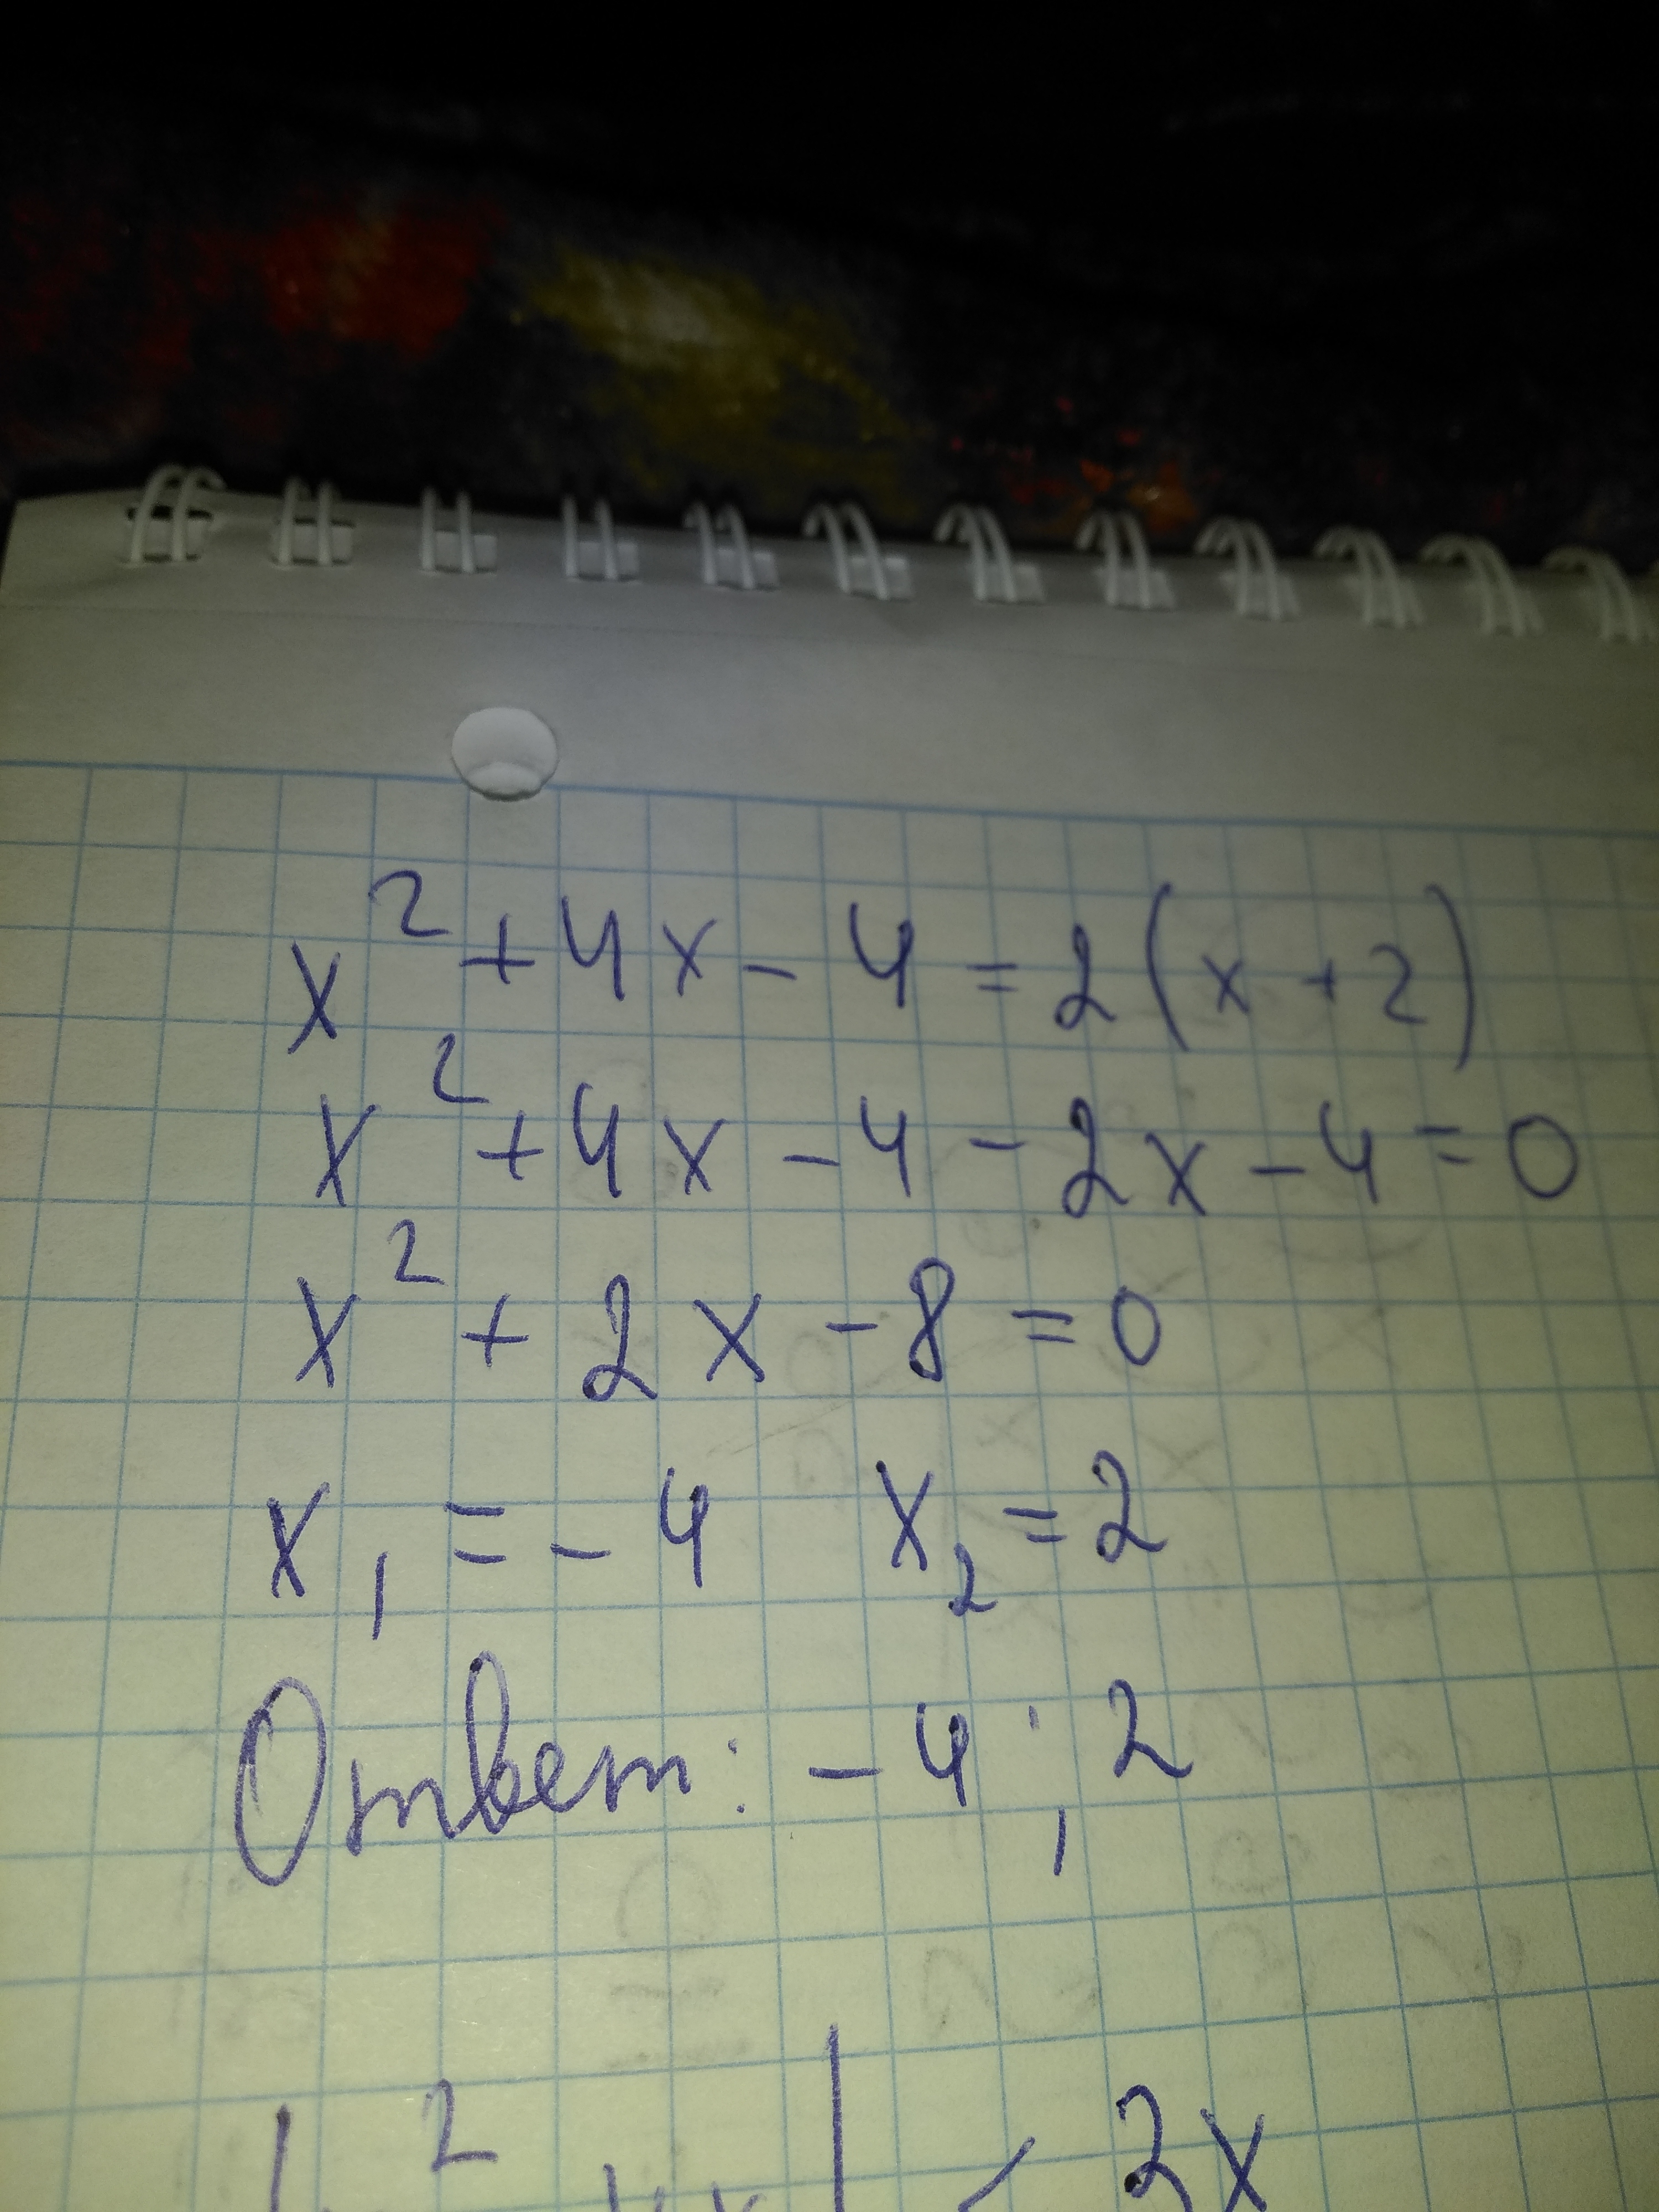 x² + 4x - 4 = 2(x + 2)
x² + 4x - 4 - 2x - 4 = 0
x² + 2x - 8 = 0
x₁ = - 4 x₂ = 2
Ответ: - 4 ; 2
2x